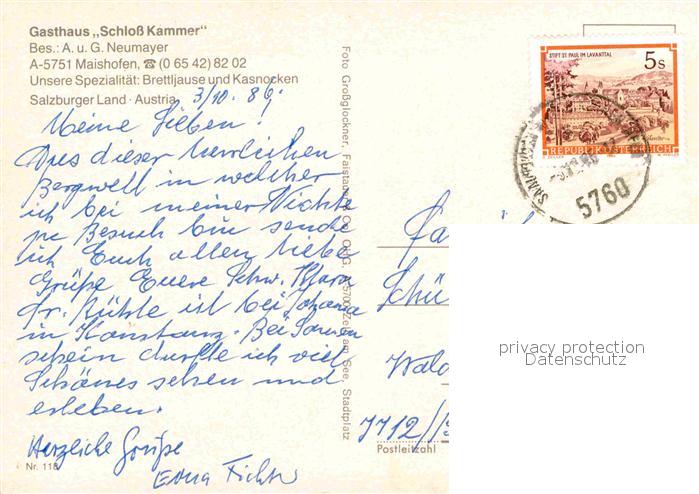 Gasthaus „Schloß Kammer"
Bes.: A. u. G. Neumayer
A-5751 Maishofen, ☎ (0 65 42) 82 02
Unsere Spezialität: Brettljause und Kasnocken
Salzburger Land · Austria
3/10. 86.
Meine Lieben!
Aus dieser herrlichen
Bergwelt in welcher
ich bei meiner Nichte
zu Besuch bin sende
ich Euch allen liebe
Grüße Euere Schw. Klara
Fr. Rühle ist bei Johana
in Konstanz. Bei Sonnen
schein durfte ich viel
Schönes sehen und
erleben.
Herzliche Grüße
Erna Fichter
Nr. 118
Foto Großglockner, Faistauer & Co. OHG, A-5700 Zell am See, Stadtplatz
STIFT ST. PAUL IM LAVANTTAL
5 S
REPUBLIK ÖSTERREICH
5760
Fa
Schü
Wald
7712/
Postleitzahl
privacy protection
Datenschutz